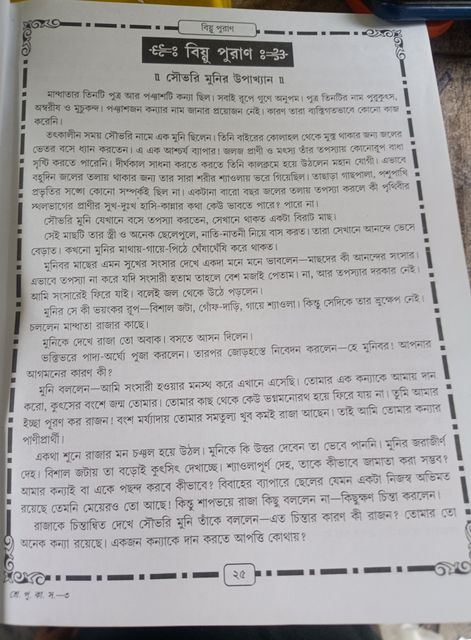 বিষ্ণু পুরাণ
বিষ্ণু পুরাণ
॥ সৌভরি মুনির উপাখ্যান ॥
মান্ধাতার তিনটি পুত্র আর পঞ্চাশটি কন্যা ছিল। সবাই রূপে গুণে অনুপম। পুত্র তিনটির নাম পুরুকুৎস,
অম্বরীষ ও মুচুকুন্দ। পঞ্চাশজন কন্যার নাম জানার প্রয়োজন নেই। কারণ তারা ব্যক্তিগতভাবে কোনো কাজ
করেনি।
তৎকালীন সময় সৌভরি নামে এক মুনি ছিলেন। তিনি বাইরের কোলাহল থেকে মুক্ত থাকার জন্য জলের
ভেতর বসে ধ্যান করতেন। এ এক আশ্চর্য ব্যাপার। জলজ প্রাণী ও মৎস্য তাঁর তপস্যায় কোনোরূপ বাধা
সৃষ্টি করতে পারেনি। দীর্ঘকাল সাধনা করতে করতে তিনি কালক্রমে হয়ে উঠলেন মহান যোগী। এভাবে
বহুদিন জলের তলায় থাকার জন্য তার সারা শরীর শ্যাওলায় ভরে গিয়েছিল। তাছাড়া গাছপালা, পশুপাখি
প্রভৃতির সঙ্গে কোনো সম্পর্কই ছিল না। একটানা বারো বছর জলের তলায় তপস্যা করলে কী পৃথিবীর
স্থলভাগের প্রাণীর সুখ-দুঃখ হাসি-কান্নার কথা কেউ ভাবতে পারে? পারে না।
সৌভরী মুনি যেখানে বসে তপস্যা করতেন, সেখানে থাকত একটা বিরাট মাছ।
সেই মাছটি তার স্ত্রী ও অনেক ছেলেপুলে, নাতি-নাতনী নিয়ে বাস করত। তারা সেখানে আনন্দে ভেসে
বেড়াত। কখনো মুনির মাথায়-গায়ে-পিঠে ঘেঁষাঘেঁষি করে থাকত।
মুনিবর মাছের এমন সুখের সংসার দেখে একদা মনে মনে ভাবলেন—মাছদের কী আনন্দের সংসার।
এভাবে তপস্যা না করে যদি সংসারী হতাম তাহলে বেশ মজাই পেতাম। না, আর তপস্যার দরকার নেই।
আমি সংসারেই ফিরে যাই। বলেই জল থেকে উঠে পড়লেন।
মুনির সে কী ভয়ংকর রূপ—বিশাল জটা, গোঁফ-দাড়ি, গায়ে শ্যাওলা। কিন্তু সেদিকে তার ভ্রুক্ষেপ নেই।
চললেন মান্ধাতা রাজার কাছে।
মুনিকে দেখে রাজা তো অবাক। বসতে আসন দিলেন।
ভক্তিভরে পাদ্য-অর্ঘ্যে পূজা করলেন। তারপর জোড়হস্তে নিবেদন করলেন—হে মুনিবর! আপনার
আগমনের কারণ কী?
মুনি বললেন—আমি সংসারী হওয়ার মনস্থ করে এখানে এসেছি। তোমার এক কন্যাকে আমায় দান
করো, কুৎসের বংশে জন্ম তোমার। তোমার কাছ থেকে কেউ ভগ্নমনোরথ হয়ে ফিরে যায় না। তুমি আমার
ইচ্ছা পূরণ কর রাজন। বংশ মর্য্যাদায় তোমার সমতুল্য খুব কমই রাজা আছেন। তাই আমি তোমার কন্যার
পাণীপ্রার্থী।
একথা শুনে রাজার মন চঞ্চল হয়ে উঠল। মুনিকে কি উত্তর দেবেন তা ভেবে পাননি। মুনির জরাজীর্ণ
দেহ। বিশাল জটায় তা বড়োই কুৎসিৎ দেখাচ্ছে। শ্যাওলাপূর্ণ দেহ, তাকে কীভাবে জামাতা করা সম্ভব?
আমার কন্যাই বা একে পছন্দ করবে কীভাবে? বিবাহের ব্যাপারে ছেলের যেমন একটা নিজস্ব অভিমত
রয়েছে তেমনি মেয়েরও তো আছে। কিন্তু শাপভয়ে রাজা কিছু বললেন না—কিছুক্ষণ চিন্তা করলেন।
রাজাকে চিন্তান্বিত দেখে সৌভরি মুনি তাঁকে বললেন—এত চিন্তার কারণ কী রাজন? তোমার তো
অনেক কন্যা রয়েছে। একজন কন্যাকে দান করতে আপত্তি কোথায়?
২৫
শ্রে. পু. কা. স.—৩